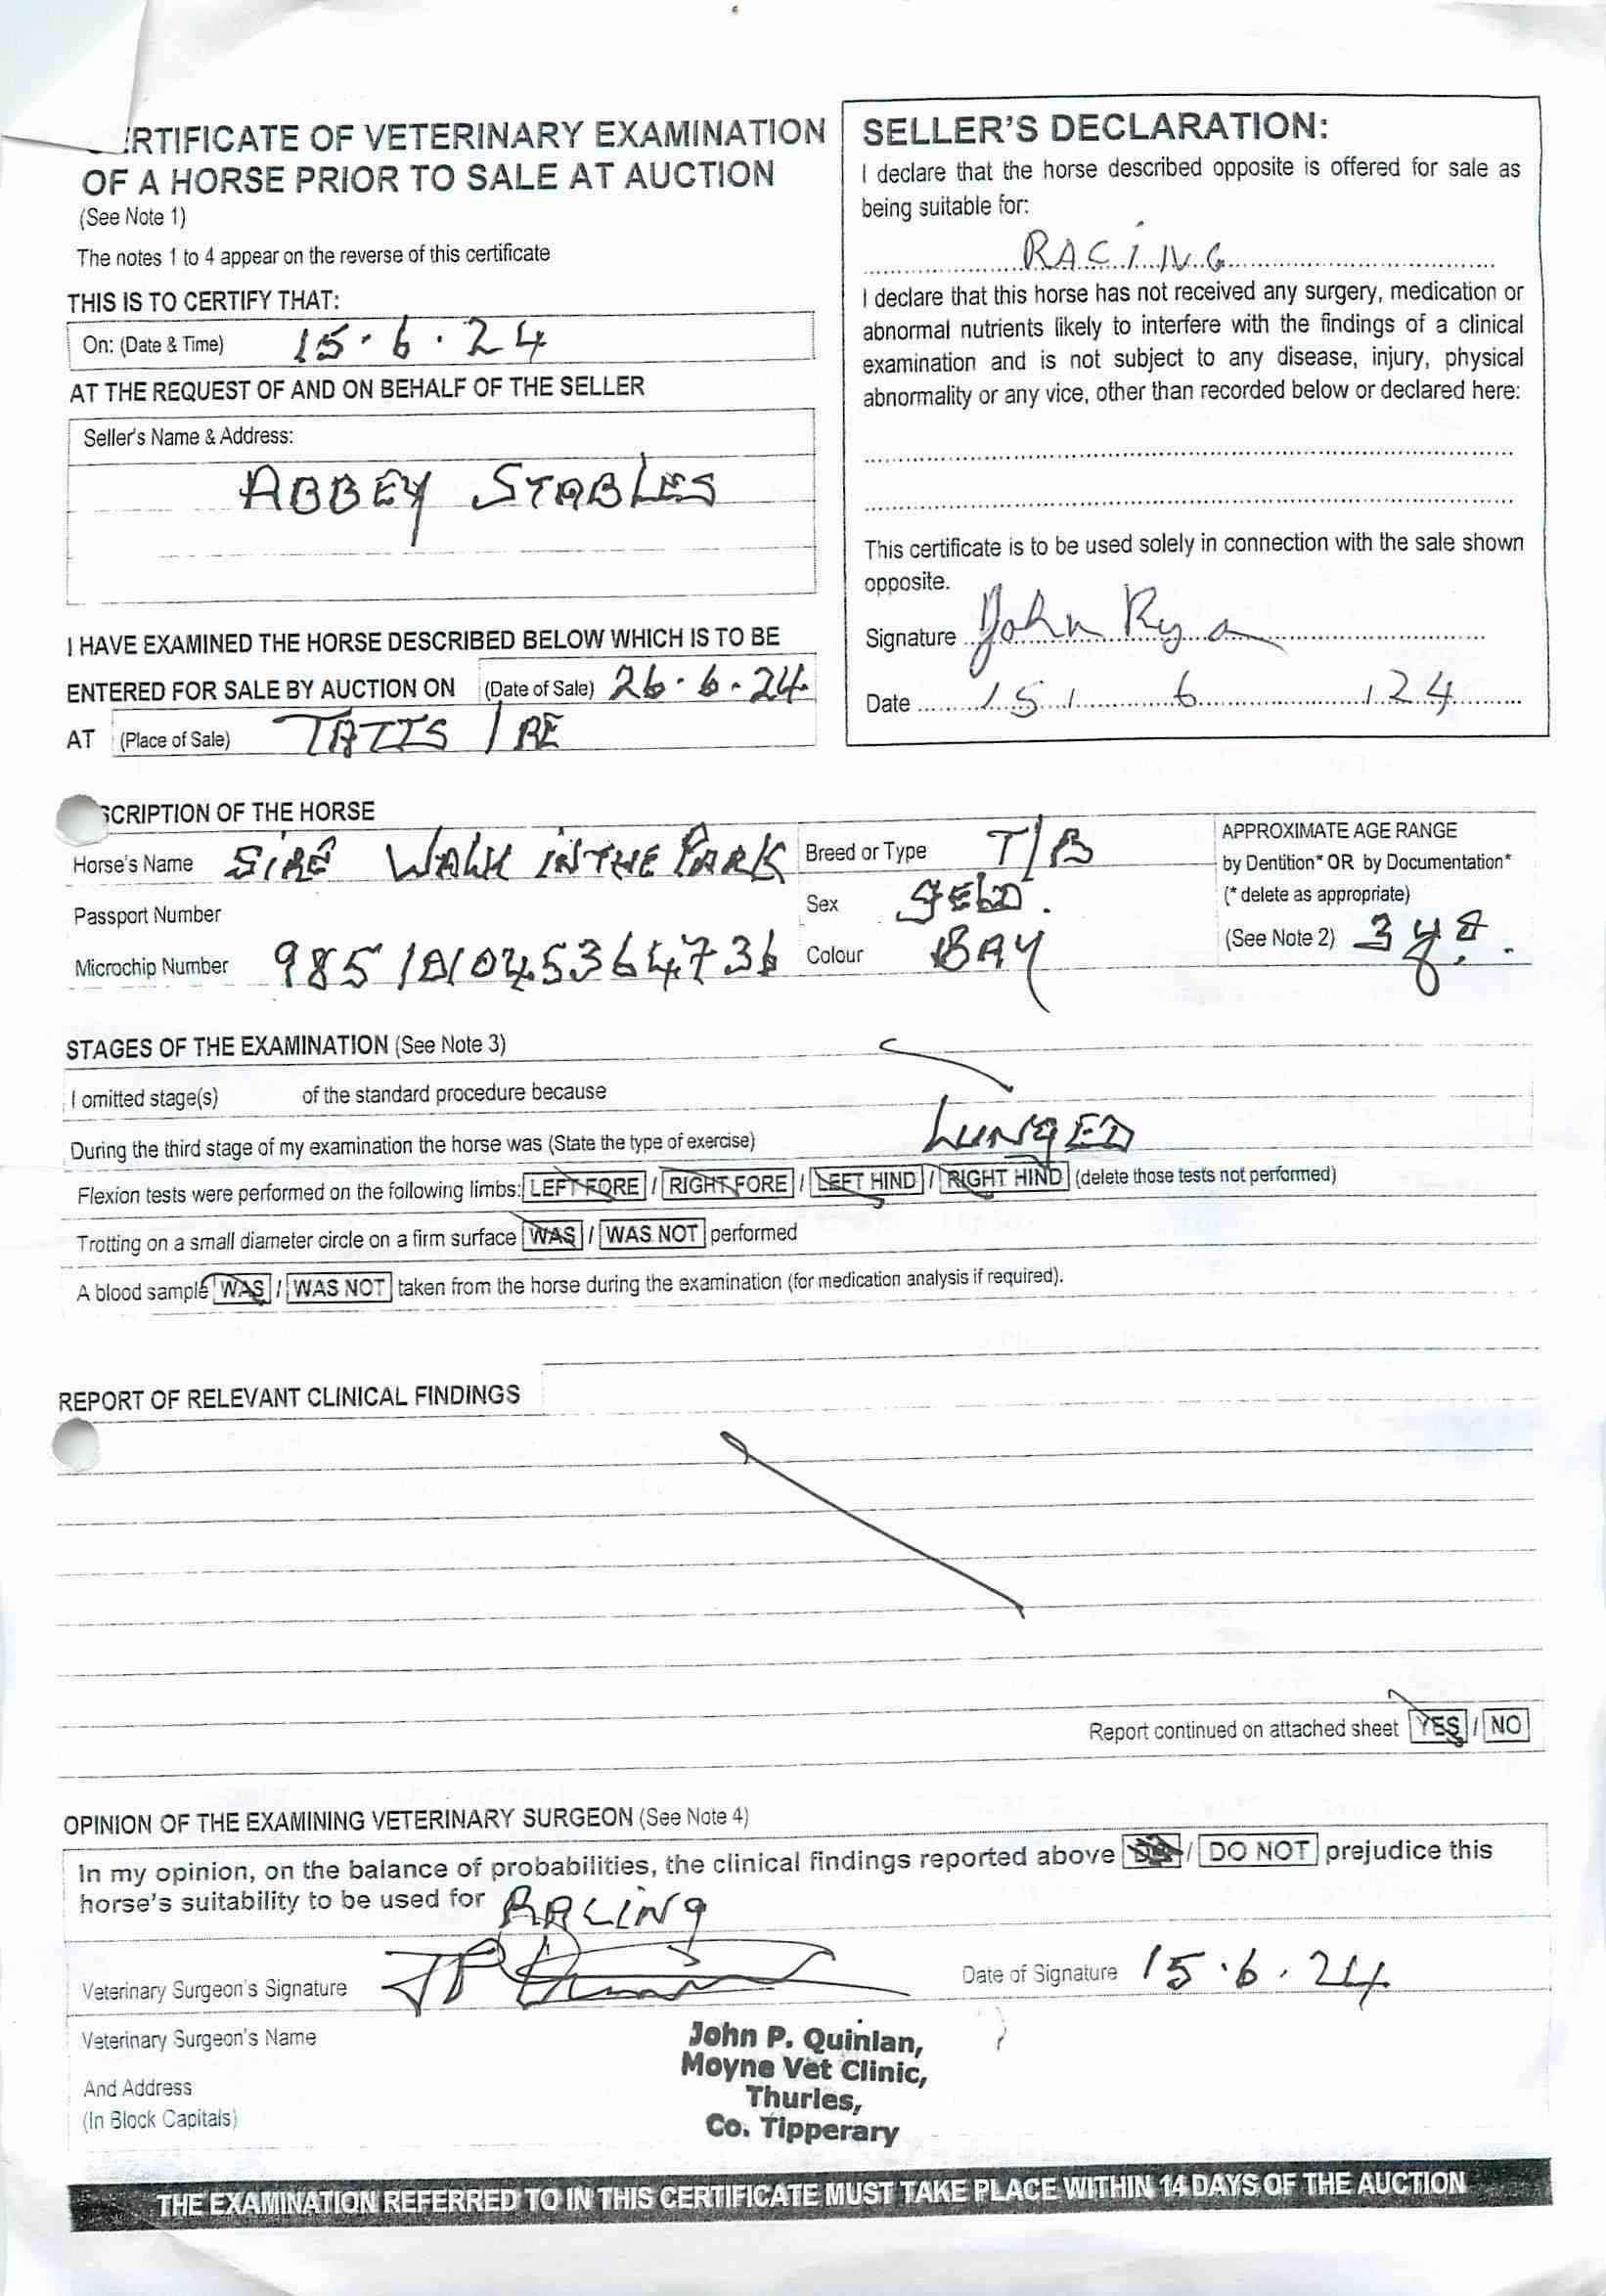 RTIFICATE OF VETERINARY EXAMINATION
OF A HORSE PRIOR TO SALE AT AUCTION
(See Note 1)
The notes 1 to 4 appear on the reverse of this certificate
THIS IS TO CERTIFY THAT:
On: (Date & Time) 15.6.24
AT THE REQUEST OF AND ON BEHALF OF THE SELLER
Seller's Name & Address:
ABBEY STABLES
I HAVE EXAMINED THE HORSE DESCRIBED BELOW WHICH IS TO BE
ENTERED FOR SALE BY AUCTION ON (Date of Sale) 26.6.24
AT (Place of Sale) TATTS IRE
SELLER'S DECLARATION:
I declare that the horse described opposite is offered for sale as
being suitable for:
RACING
I declare that this horse has not received any surgery, medication or
abnormal nutrients likely to interfere with the findings of a clinical
examination and is not subject to any disease, injury, physical
abnormality or any vice, other than recorded below or declared here:
This certificate is to be used solely in connection with the sale shown
opposite.
Signature John Ryan
Date 15/6/24
SCRIPTION OF THE HORSE
Horse's Name SIRE WALK IN THE PARK Breed or Type T/B
Passport Number Sex GELD.
Microchip Number 985101045364736 Colour BAY
APPROXIMATE AGE RANGE
by Dentition* OR by Documentation*
(* delete as appropriate)
(See Note 2) 3 y.o.
STAGES OF THE EXAMINATION (See Note 3)
I omitted stage(s) of the standard procedure because
During the third stage of my examination the horse was (State the type of exercise) LUNGED
Flexion tests were performed on the following limbs: LEFT FORE / RIGHT FORE / LEFT HIND / RIGHT HIND (delete those tests not performed)
Trotting on a small diameter circle on a firm surface WAS / WAS NOT performed
A blood sample WAS / WAS NOT taken from the horse during the examination (for medication analysis if required).
REPORT OF RELEVANT CLINICAL FINDINGS
Report continued on attached sheet YES / NO
OPINION OF THE EXAMINING VETERINARY SURGEON (See Note 4)
In my opinion, on the balance of probabilities, the clinical findings reported above / DO NOT prejudice this
horse's suitability to be used for RACING
Veterinary Surgeon's Signature Date of Signature 15.6.24
Veterinary Surgeon's Name
And Address
(In Block Capitals)
John P. Quinlan,
Moyne Vet Clinic,
Thurles,
Co. Tipperary
THE EXAMINATION REFERRED TO IN THIS CERTIFICATE MUST TAKE PLACE WITHIN 14 DAYS OF THE AUCTION